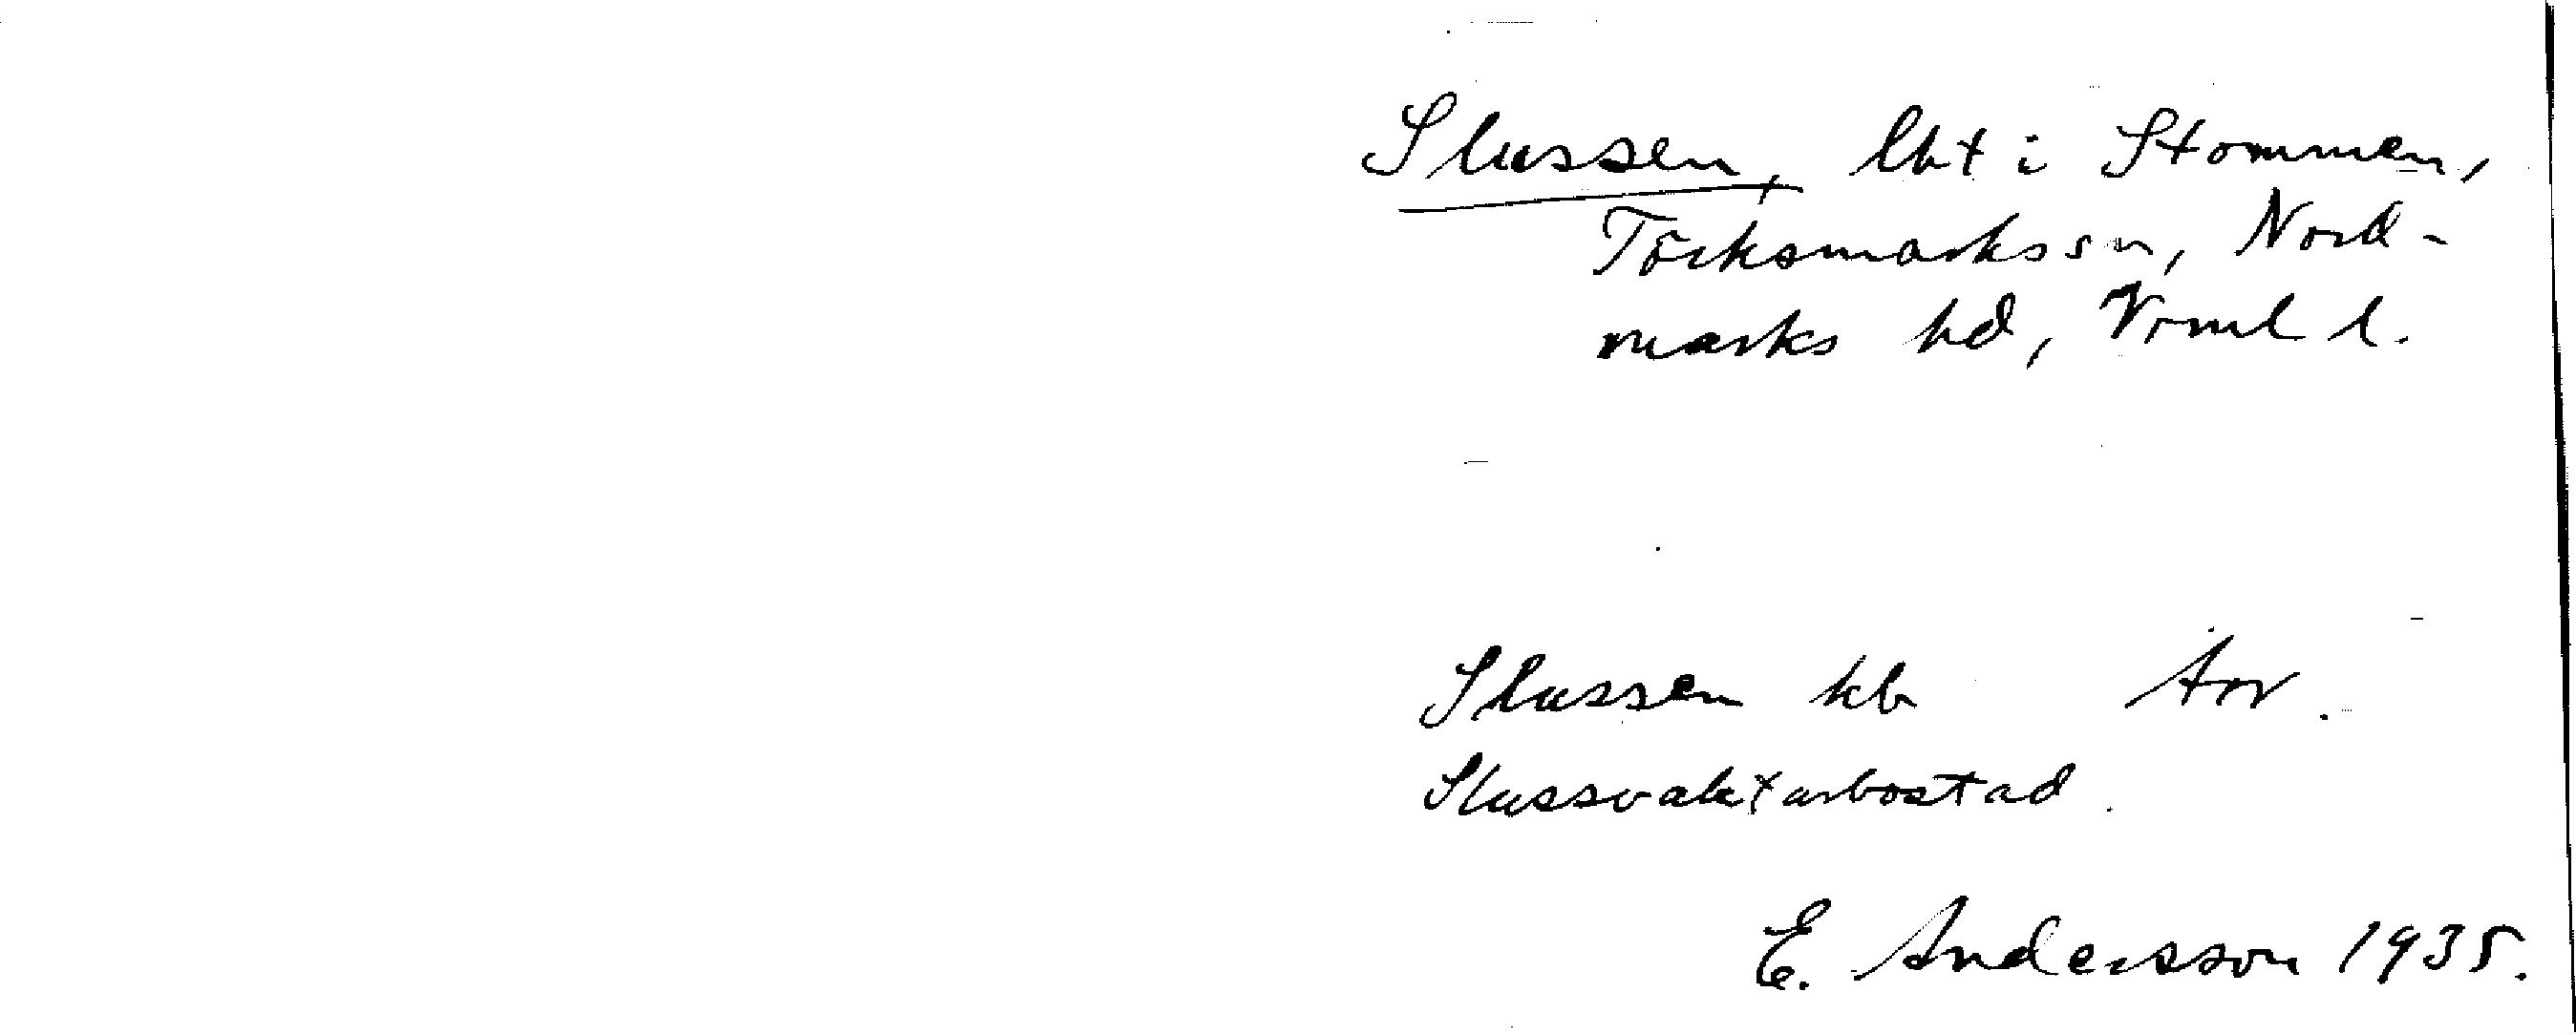 Slussen, lht i Stommen,
Töcksmarks sn, Nord-
marks hd, Vrml l.
Slussen kb
Slussvaktarbostad.
E. Andersson 1935.